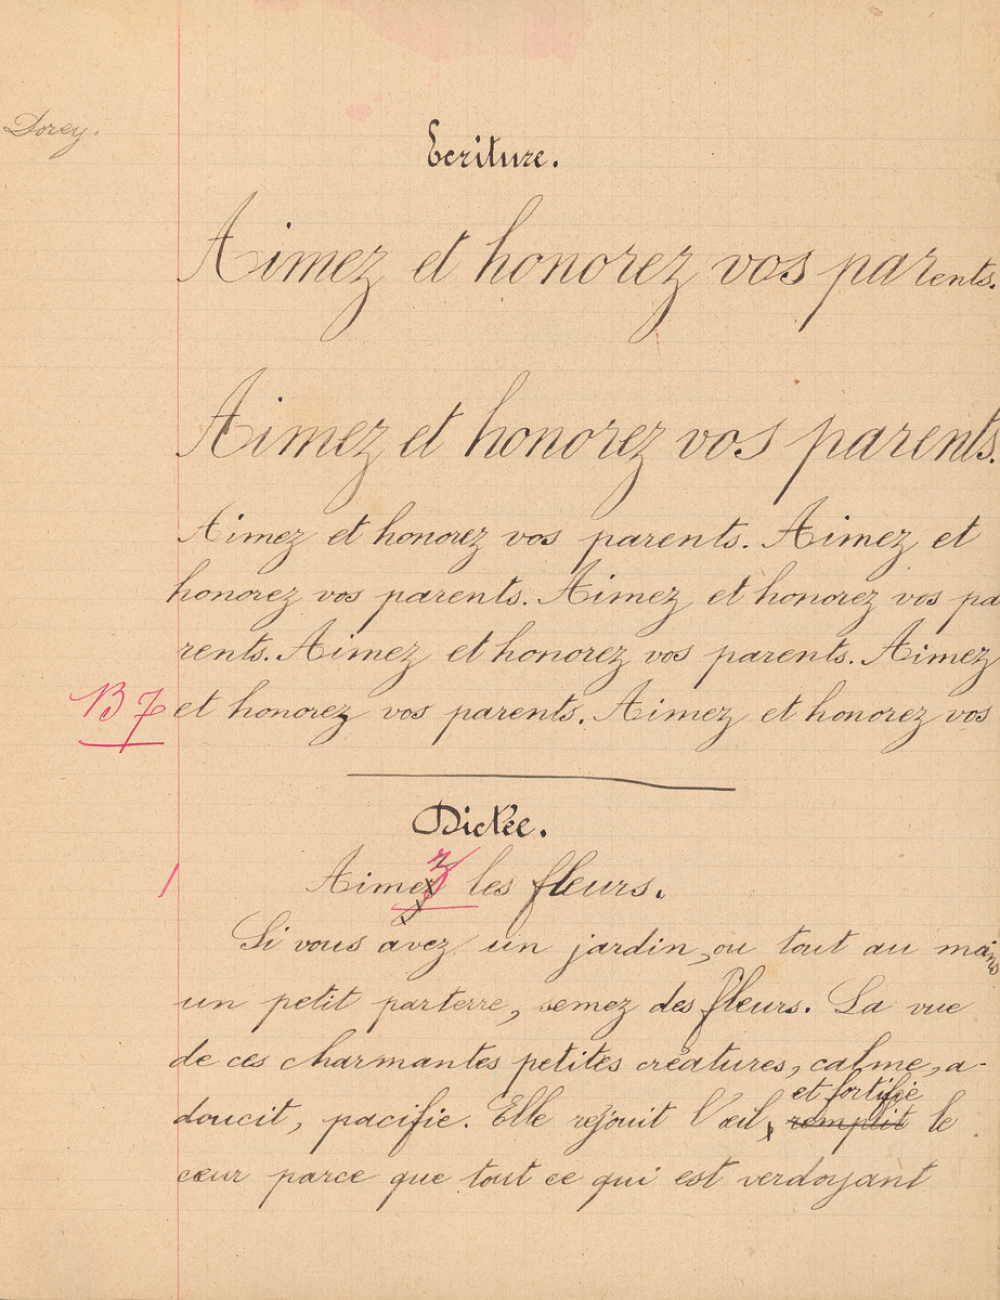 Dorey.
Ecriture.
Aimez et honorez vos parents.
Aimez et honorez vos parents.
Aimez et honorez vos parents. Aimez et
honorez vos parents. Aimez et honorez vos pa
rents. Aimez et honorez vos parents. Aimez
B 7 et honorez vos parents. Aimez et honorez vos
Dictée.
1 Aimez les fleurs.
Si vous avez un jardin, ou tout au moins
un petit parterre, semez des fleurs. La vue
de ces charmantes petites créatures, calme, a-
et fortifie
doucit, pacifie. Elle réjouit l'œil, remplit le
cœur parce que tout ce qui est verdoyant